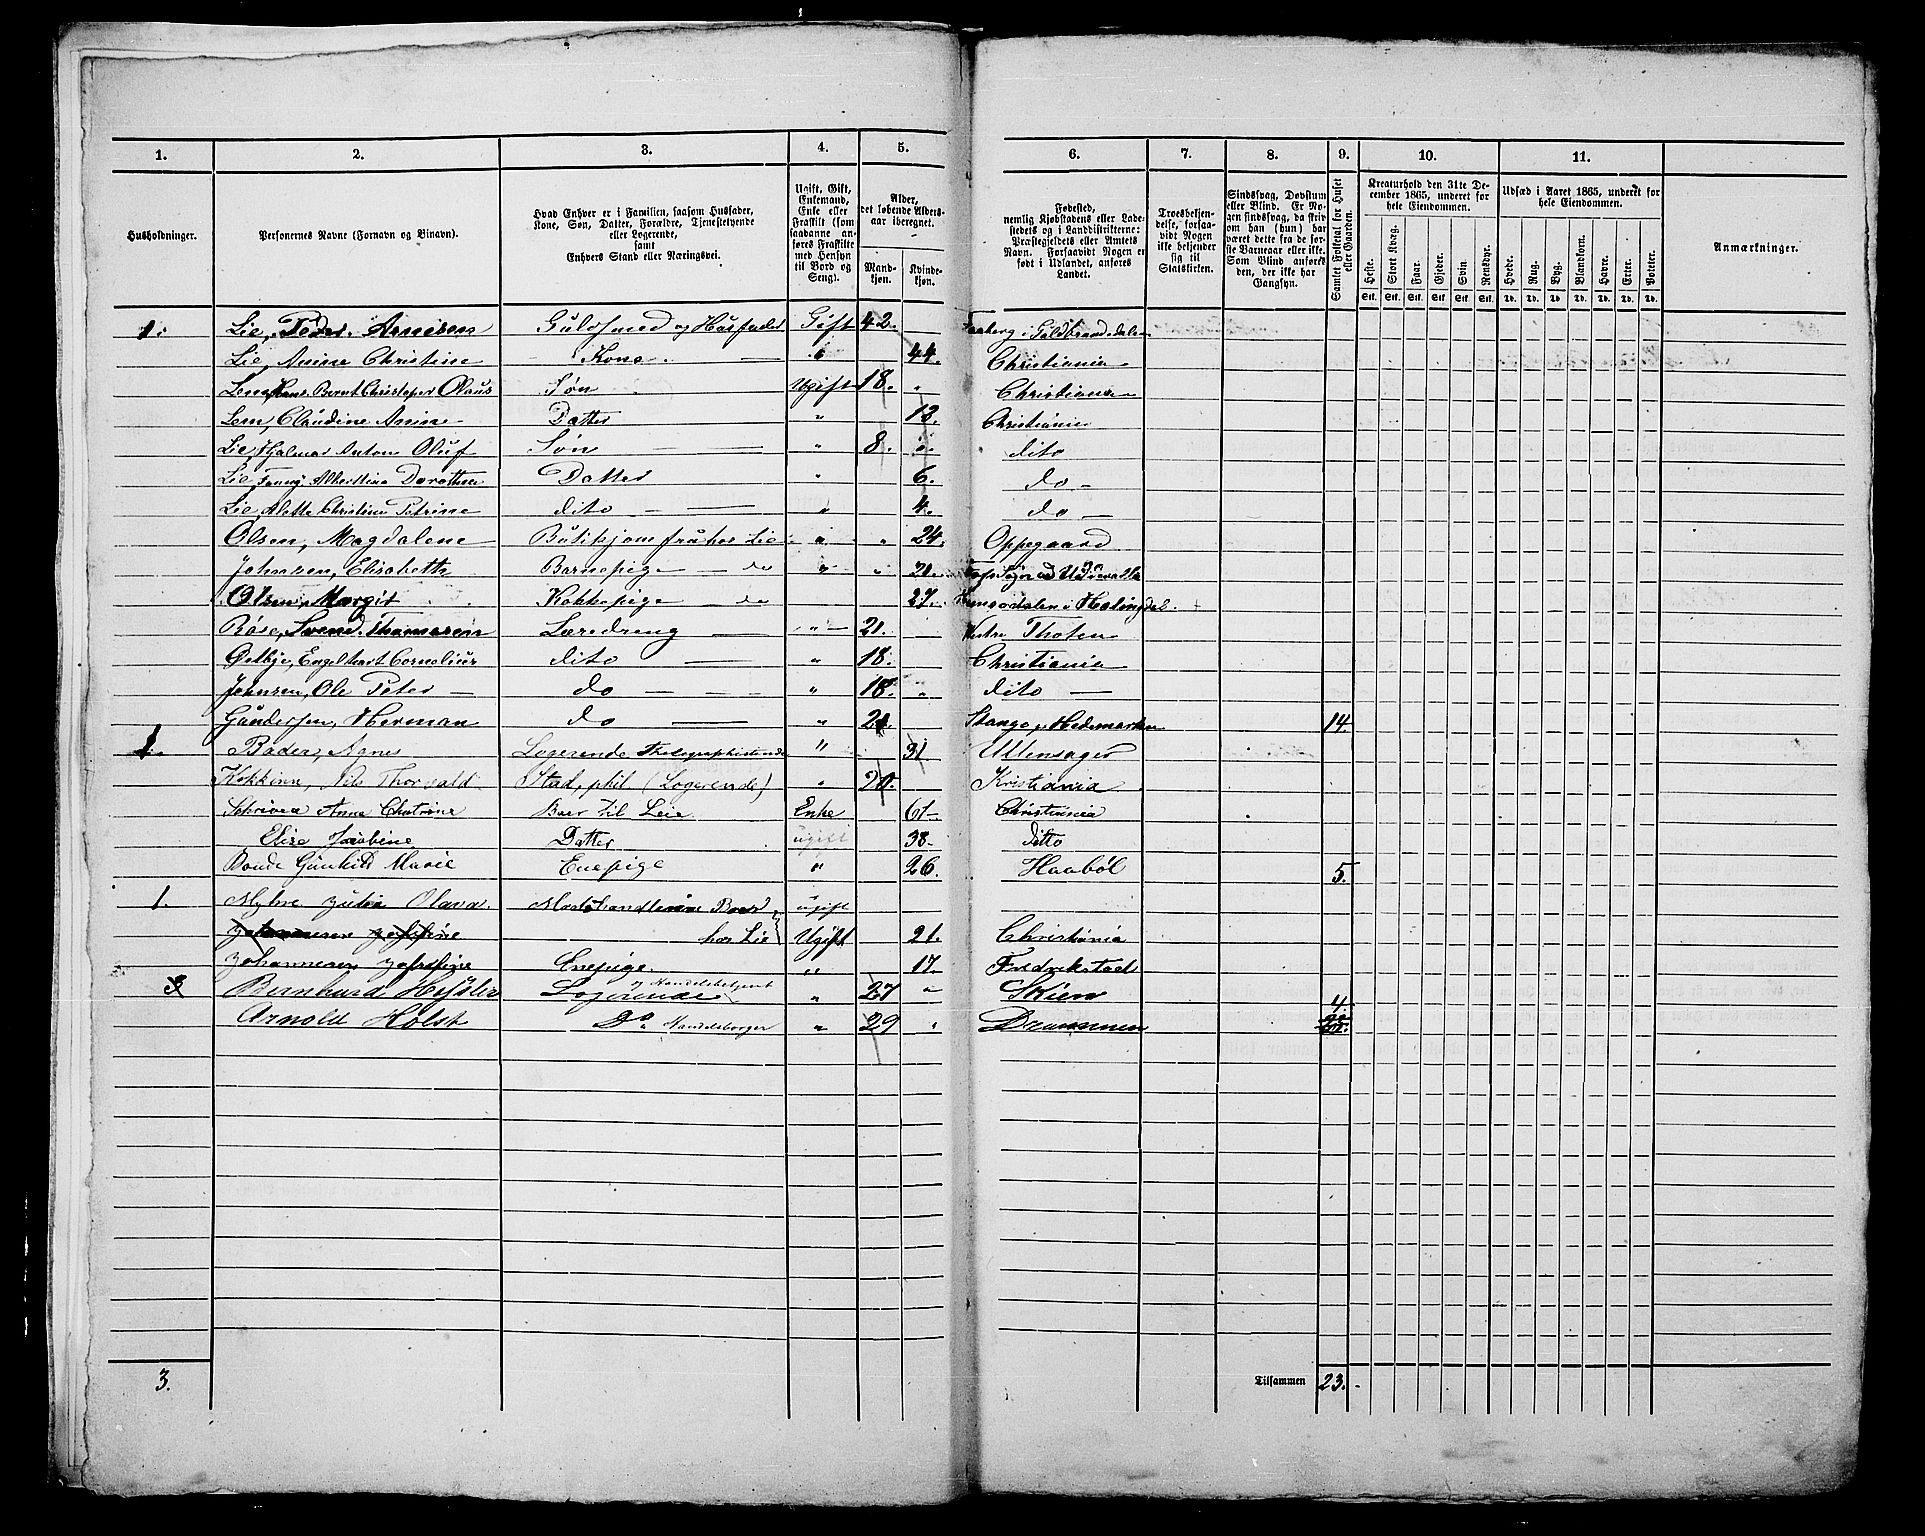 1. 2. 3. 4. 5. 6. 7. 8. 9. 10. 11.
Husholdninger.
Personernes Navne (Fornavn og Binavn).
Hvad Enhver er i Familien, saasom Husfader,
Kone, Søn, Datter, Forældre, Tjenestetyende
eller Logerende,
samt
Enhvers Stand eller Næringsvei.
Ugift, Gift,
Enkemand,
Enke eller
Fraskilt (som
saadanne an-
føres Fraskilte
med Hensyn
til Bord og
Seng).
Alder,
det løbende Alders-
aar iberegnet.
Mand-
kjøn.
Kvinde-
kjøn.
Fødested,
nemlig Kjøbstadens eller Lade-
stedets og i Landdistrikterne:
Præstegjeldets eller Amtets
Navn. Forsaavidt Nogen er
født i Udlandet, anføres
Landet.
Troesbekjen-
delse, forsaa-
vidt Nogen
ikke bekjender
sig til
Statskirken.
Sindssvag, Døvstum
eller Blind. Er No-
gen sindssvag, da skriv
om han (hun) har
været dette fra de før-
ste Barneaar eller ikke.
Som Blind anføres
den, der ikke har
Gangsyn.
Samlet Folketal for Huset
eller Gaarden.
Kreaturhold den 31te De-
cember 1865, underet for
hele Eiendommen.
Heste. Stort Kvæg. Faar. Gjeder. Svin. Rensdyr.
Stk. Stk. Stk. Stk. Stk. Stk.
Udsæd i Aaret 1865, underet for
hele Eiendommen.
Hvede. Rug. Byg. Blandkorn. Havre. Erter. Poteter.
Td. Td. Td. Td. Td. Td. Td.
Anmærkninger.
1. Lie, Peder Arnesen Guldsmed og Husfader Gift 42. Faaberg i Guldbrandsdalen
Lie, Anine Christine Kone. " 44. Christiania
Hans Bernt Christopher Olaus Søn Ugift 18. " Christiania
Lem, Claudine Anine Datter " 13. Christiania
Lie, Hjalmar Anton Oluf Søn " 8. " dito
Lie, Fanny Albertina Dorothea Datter " 6. do
Lie, Alette Christine Petrine dito " 4. do
Olsen, Magdalene Butikjomfru hos Lie " " 24. Oppegaard
Johnsen, Elisabeth Barnepige do " " 21.
Olsen, Margit Kokkepige do 27. Hemsedalen i Halingdal
Røse, Svend Thomasen Læredreng " 21. Vestre Thoten
Østbye, Engelhart Cornelius dito " 18. Christiania
Johnsen, Ole Peter do " 18. " dito
Gundersen, Herman do " 21 Stange p. Hedemarken 14.
1. Bader, Agnes Logerende Thelegraphistinde " 31 Ullensager
Nils Thorvald Stud. phil (Logerende) " 20. Kristiania
Schriver Anna Chatrine Boer til Leie Enke 61 Christiania
Elise Jacobine Datter ugift 38. ditto
Bonde Gunhild Marie Enepige " 26. Haabøl 5.
1. Myhre Julie Olava. Modehandlerinne Boer ugift
Johannesen Josefine hos Lie Ugift 21. Christiania
Johannesen Josefine Enepige. " 17. Fredrikstad
Bernhard Logerende og Handelsbetjent " 27 " Skien 4.
Arnold Holst Do Handelsborger " 29 " Drammen
3.
Tilsammen 23.